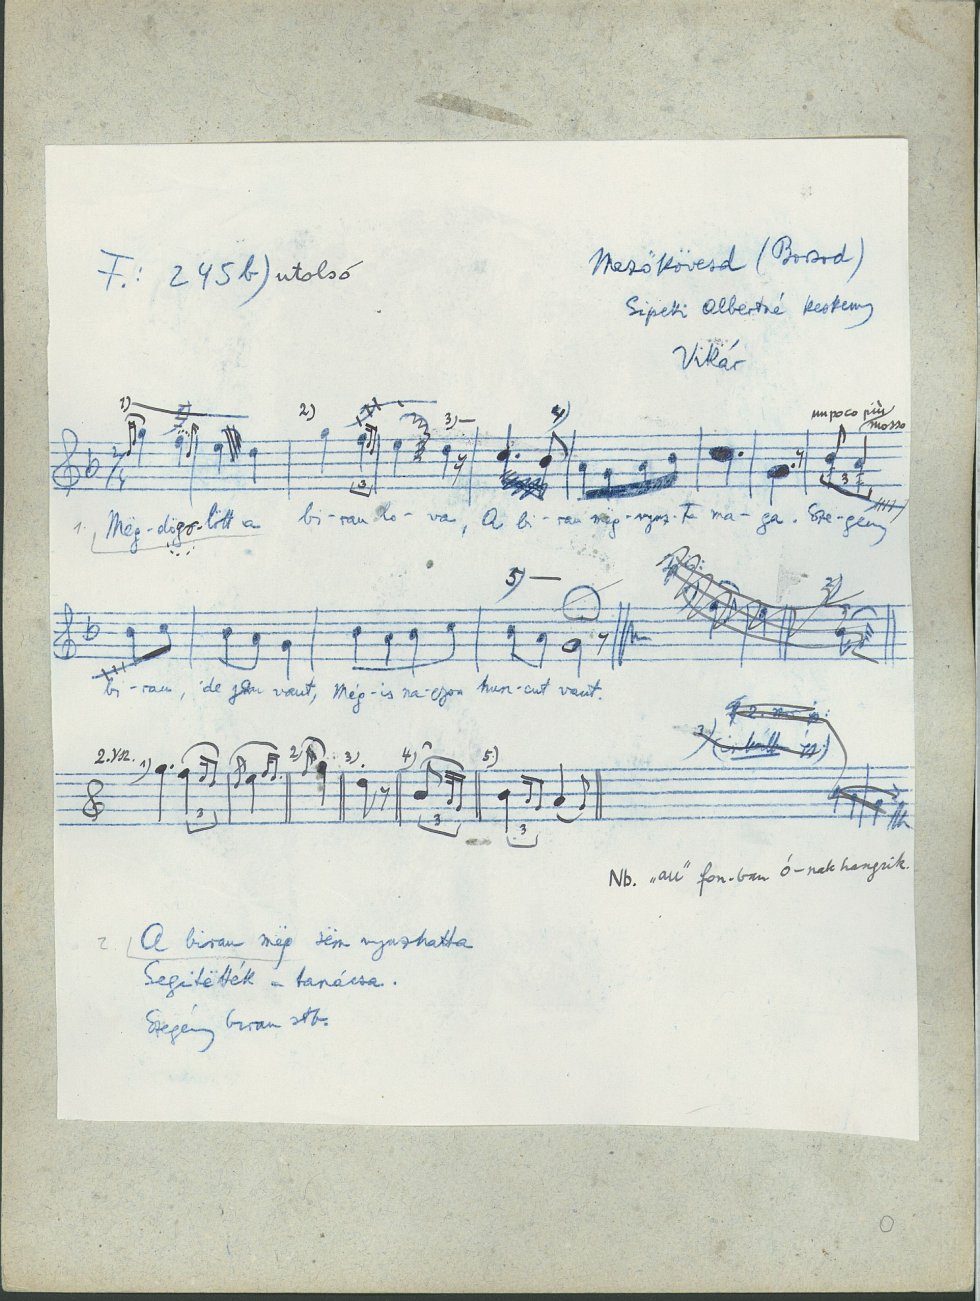 F.: 245b) utolsó
Mezőkövesd (Borsod)
Sipeki Albertné
Vikár
1) 2) 3) 4) un poco più mosso
1. Mëg-dögo-lött a bi-rau lo-va, A bi-rau mëg-nyuz-ta ma-ga. Sze-gény
5)
bi-rau, de jau vaut, Még-is na-gyon hun-cut vaut.
2. vsz. 1) 2) 3) 4) 5)
Nb. „au" fon-ban ó-nak hangzik.
2. A birau mëg sëm nyuzhatta
Segitëtték a tanácsa.
Szegény birau stb.